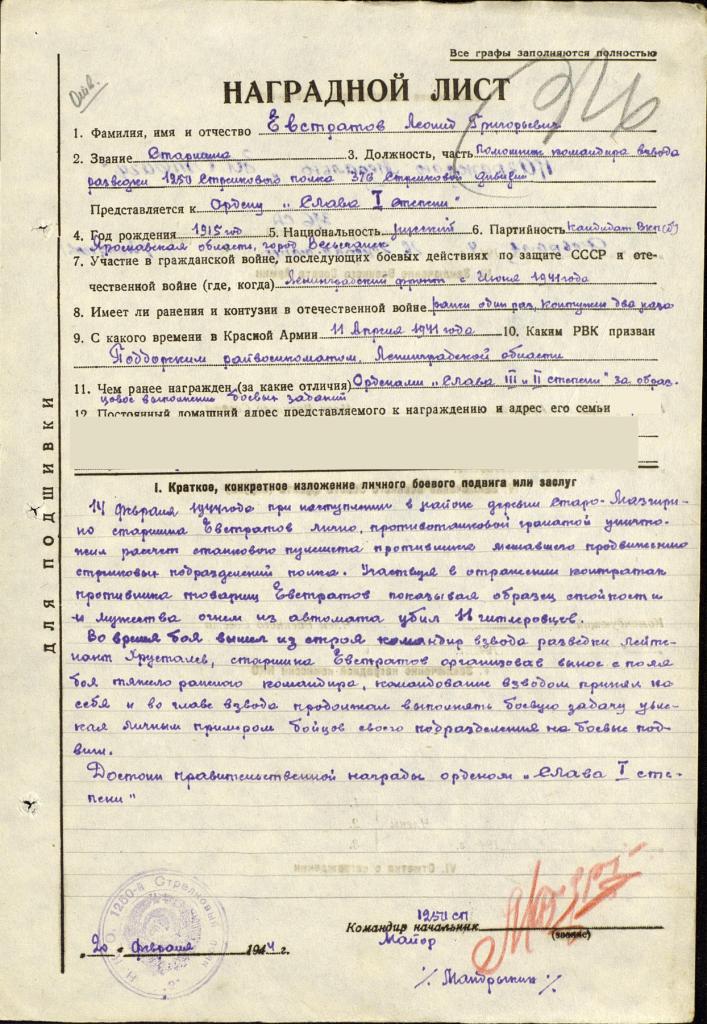 Все графы заполняются полностью
НАГРАДНОЙ ЛИСТ
1. Фамилия, имя и отчество Евстратов Леонид Григорьевич
2. Звание Старшина 3. Должность, часть Помощник командира взвода
разведки 1250 стрелкового полка 376 стрелковой дивизии
Представляется к Ордену „Слава I степени"
4. Год рождения 1915 год 5. Национальность русский 6. Партийность кандидат ВКП(б)
Ярославская область, город
7. Участие в гражданской войне, последующих боевых действиях по защите СССР и оте-
чественной войне (где, когда) Ленинградский фронт с Июня 1941 года
8. Имеет ли ранения и контузии в отечественной войне ранен один раз, контужен два раза
9. С какого времени в Красной Армии 11 Апреля 1941 года 10. Каким РВК призван
Поддорским райвоенкоматом, Ленинградской области
11. Чем ранее награжден (за какие отличия) Орденами „Слава III и II степени" за образ-
цовое выполнение боевых заданий
12. Постоянный домашний адрес представляемого к награждению и адрес его семьи
I. Краткое, конкретное изложение личного боевого подвига или заслуг
14 февраля 1944 года при наступлении в районе деревни Старо-
но старшина Евстратов лично, противотанковой гранатой уничто-
жил расчет станкового пулемета противника мешавшего продвижению
стрелковых подразделений полка. Участвуя в отражении контратак
противника товарищ Евстратов показывая образец стойкости
и мужества огнем из автомата убил 11 гитлеровцев.
Во время боя вышел из строя командир взвода разведки лейте-
нант Хрусталев, старшина Евстратов организовав вынос с поля
боя тяжело раненого командира, командование взводом принял на
себя и во главе взвода продолжал выполнять боевую задачу увле-
кая личным примером бойцов своего подразделения на боевые под-
виги.
Достоин правительственной награды орденом „Слава I сте-
пени"
ДЛЯ ПОДШИВКИ
1250-й Стрелковый полк
1250 СП
Командир начальник
(звание)
Майор
„20" февраля 1944 г.
/Мандрыкин/